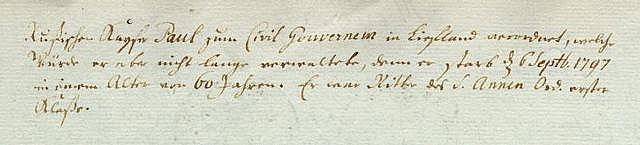 Rußischen Kayser Paul zum Civil Gouvernem in Liefland verordnet, welche
Würde er aber nicht lange verwaltete, denn er starb d. 6 Septb. 1797
in einem Alter von 60 Jahren. Er war Ritter des S. Annen Ord. erster
Klaße.